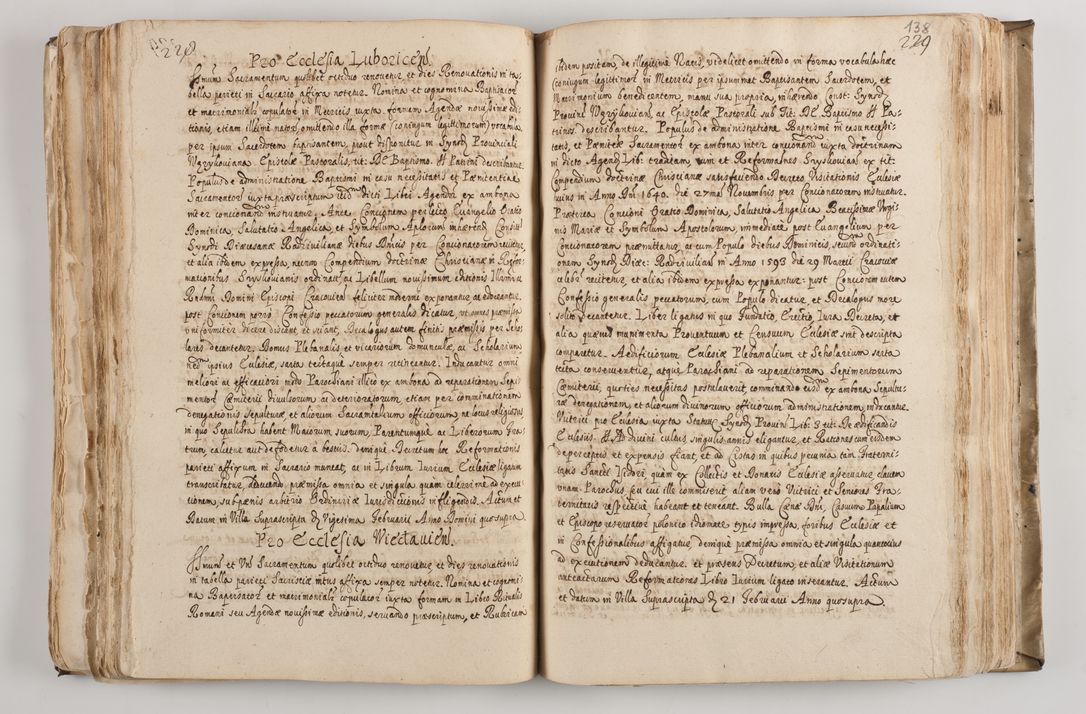 228
Pro Ecclesia Luboricen.
Ssmum Sacramentum quolibet octiduo renovetur, et dies Renovationis in ta-
bella parieti in Sacrario affixa notetur. Nomina et cognomina Baptisator
et matrimonialr copulator in Metricis iuxta formam Agendæ novissimæ edi-
tionis, etiam illitimi nator, omittendo illa formæ (coniugum legittimorum) vocabula,
per ipsum Sacerdotem baptisantem, prout disponitur in Synodo Provinciali
Ugryskoviana Epistolæ Pastoralis, tit: De Baptismo. et Patrini describantur.
Populus de administratione Baptismi in casu necessitatis et Pænitentiæ
Sacramentor iuxta præscriptum dicti Libri Agendor ex ambona
inter concionandum instruatur. Ante Concionem perlecto Evangelio Oratio
Dominica, Salutatio Angelica, et Symbolum Aplorum inhærendo Constit
Synodi Diæcesanæ Radziviliana diebus Dnicis per Concionatorem recitetur,
et alia ibidem expressa, necnon Compendium doctrinæ Christianæ in Refor-
mationibus Sryskovianis ordinata, ac Libellum novissimum editionis Illmi et
Rndmi Domini Episcopi Cracovien feliciter moderni exponantur ac edoceantur,
post Concionem verro Confessio peccatorum generalis dicatur, ut omnes præmissa
uniformiter dicere discant, et sciant, Decalogus autem finitis præmissis per Scho-
lares decantetur. Domus Plebanalis et vicariorum domunculæ, ac Scholarium
necnon ipsius Ecclesiæ, sarta tectaque semper retineantur. Inducantur omni
meliori ac efficaciori modo Parochiani illico ex ambona ad reparationem Sepi-
mentor Cæmiterii divulsorum ac deterioratorum, etiam per comminationem
denegationis sepulturæ, et aliorum Sacramtalium officiorum, ne locus religiosus
in quo Sepulchra habent Maiorum suorum, Parentumque ac Liberorum Fra-
trum, calcetur aut defodetur à bestiis. Denique Decretum hoc Reformationis
parieti affixum in Sacrario maneat, ac in Librum Iurium Ecclesiæ ligatum
transcribatur, deducendo præmissa omnia et singula quam celerrime ad execu-
tionem, sub pænis arbitrio Ordinariæ Iurisdictionis infligendis. Actum et
Datum in Villa Suprascripta Vigesima Februarii Anno Domini quo supra.
Pro Ecclesia Wieclavien.
Ssmum et Vnl Sacramentum quolibet octiduo renovetur, et dies renovationis
in tabella parieti Sacristiæ intus affixa semper notetur. Nomina et cognomi-
na Baptisator et matrimonialr copulator iuxta formam in Libro Ritualis
Romani seu Agendæ novissimæ editionis, servando præscriptum, et Rubricam
138
229
ibidem positam, de illegitime Natis, videlicet omittendo in forma vocabula hæc
(coniugum legittimor) in Metricis per ipsummet Baptisantem Sacerdotem, et
Matrimonium benedicentem, manu sua propria, inhærendo Const: Synodi
Provin Ugryskovianæ, ac Epistolæ Pastorali sub Tit: De Baptismo et Pa-
trinos describantur. Populus de administratione Baptismi in casu necessi-
tatis, et Pænitentiæ Sacramentor ex ambona inter concionandum iuxta doctrinam
in dicto Agendor Lib: traditam, tum et Reformationes Sryskovianas ex tit:
Compendium doctrinæ Christianæ satisfaciendo Decreto Visitationis Ecclesiæ
huius in Anno Dni 1640. die 27ma Novembris per Concionatorem instruatur.
Præterea Concioni Oratio Dominica, Salutatio Angelica Beatissimæ Virgi-
nis Mariæ et Symbolum Apostolorum, immediate post Evangelium per
Concionatorem præmittatur, ac cum Populo diebus Dominicis, secundum ordinati-
onem Synodi Diæc: Radziviliani in Anno 1593 die 29 Martii Cracoviæ
celebr recitetur, et alia ibidem expressa exponantur: post Concionem autem
Confessio generalis peccatorum, cum Populo dicatur, et Decalogus more
solito decantetur. Liber ligatus in quo Fundatio, Erectio Iura Decreta, et
alia quævis munimenta Proventuum et Censuum Ecclesiæ sint descripta
comparetur. Aedificiorum Ecclesiæ Plebanalium et Scholarium sarta
tecta conserventur, atque Parochiani ad reparationem Sepimentorum
Cæmiterii, quoties necessitas postulaverit, comminando eisdem ex ambona Sepultu-
ræ denegationem, et aliorum divinorum officiorum administrationem, inducantur.
Vitrici pro Ecclesia iuxta Statut Synodi Provin Lib: 3 tit: De ædificandis
Ecclesiis. et Ad divini cultus singulis annis eligantur, et Rationes cum eisdem
de perceptis et expensis fiant, et ad Cistas in quibus pecunia tam Fraterni-
tatis Sancti Isidori, quam ex Collectis et Donariis Ecclesiæ asservatur, clavem
unam Parochus, seu cui ille commiserit aliam vero Vitrici et Seniores Fra-
ternitatis respective habeant et teneant. Bulla Cænæ Dni, Casuum Papalium
et Episcopo reservator polonico idiomate typis impressa, foribus Ecclesiæ et
in Confessionalibus affigatur, denique præmissa omnia et singula quantocius
ad executionem deducantur, et præsens Decretum, et aliæ Visitationum
anteactarum Reformationes Libro Iurium ligato inserantur. Actum
et datum in Villa Suprascripta 21 Februarii Anno quo supra.